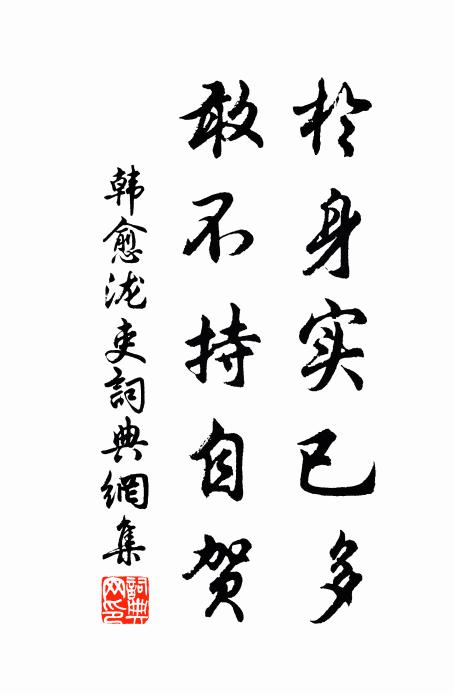 於身实已多
敢不持自贺
韩愈泷吏詞典網集
詞典网印